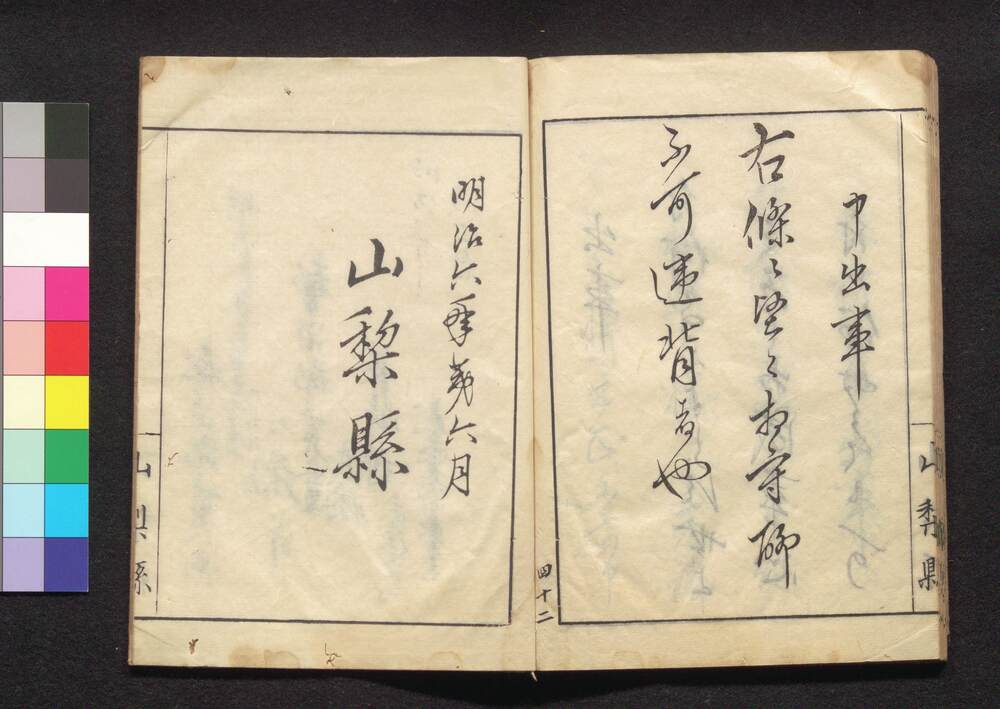 申出事
右條〻堅〻相守聊
不可違背者也
山梨県
四十二
明治六年第六月
山梨縣
山梨縣